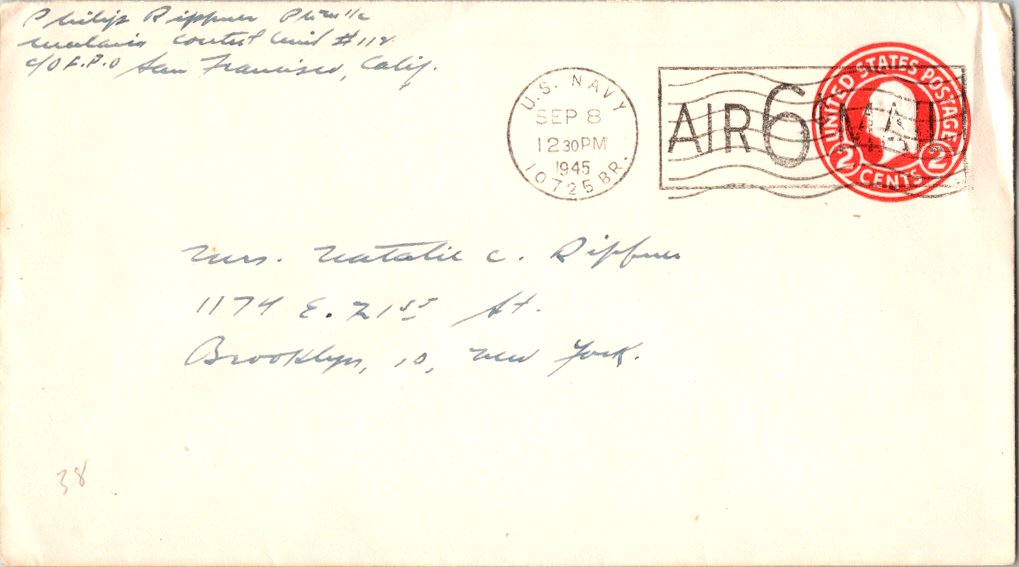 Philip Rippner PhM 1/c
Malaria Control Unit #112
c/o F.P.O San Francisco, Calif.
U.S. NAVY
SEP 8
12 30 PM
1945
10725 BR.
AIR 6¢ MAIL
UNITED STATES POSTAGE
2 CENTS 2
Mrs. Natalie C. Rippner
1174 E. 21st St.
Brooklyn, 10, New York.
38